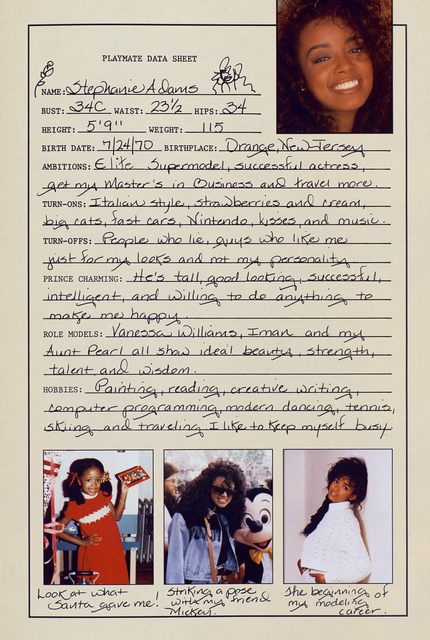 PLAYMATE DATA SHEET
NAME: Stephanie Adams
BUST: 34C WAIST: 23½ HIPS: 34
HEIGHT: 5'9" WEIGHT: 115
BIRTH DATE: 7/24/70 BIRTHPLACE: Orange, New Jersey
AMBITIONS: Elite Supermodel, successful actress,
get my Master's in Business and travel more.
TURN-ONS: Italian style, strawberries and cream,
big cats, fast cars, Nintendo, kisses, and music.
TURN-OFFS: People who lie, guys who like me
just for my looks and not my personality.
PRINCE CHARMING: He's tall, good looking, successful,
intelligent, and willing to do anything to
make me happy.
ROLE MODELS: Vanessa Williams, Iman and my
Aunt Pearl all show ideal beauty, strength,
talent, and wisdom.
HOBBIES: Painting, reading, creative writing,
computer programming, modern dancing, tennis,
skiing and traveling. I like to keep myself busy.
Look at what
Santa gave me!
Striking a pose
with my friend
Mickey.
The beginning of
my modeling
career.